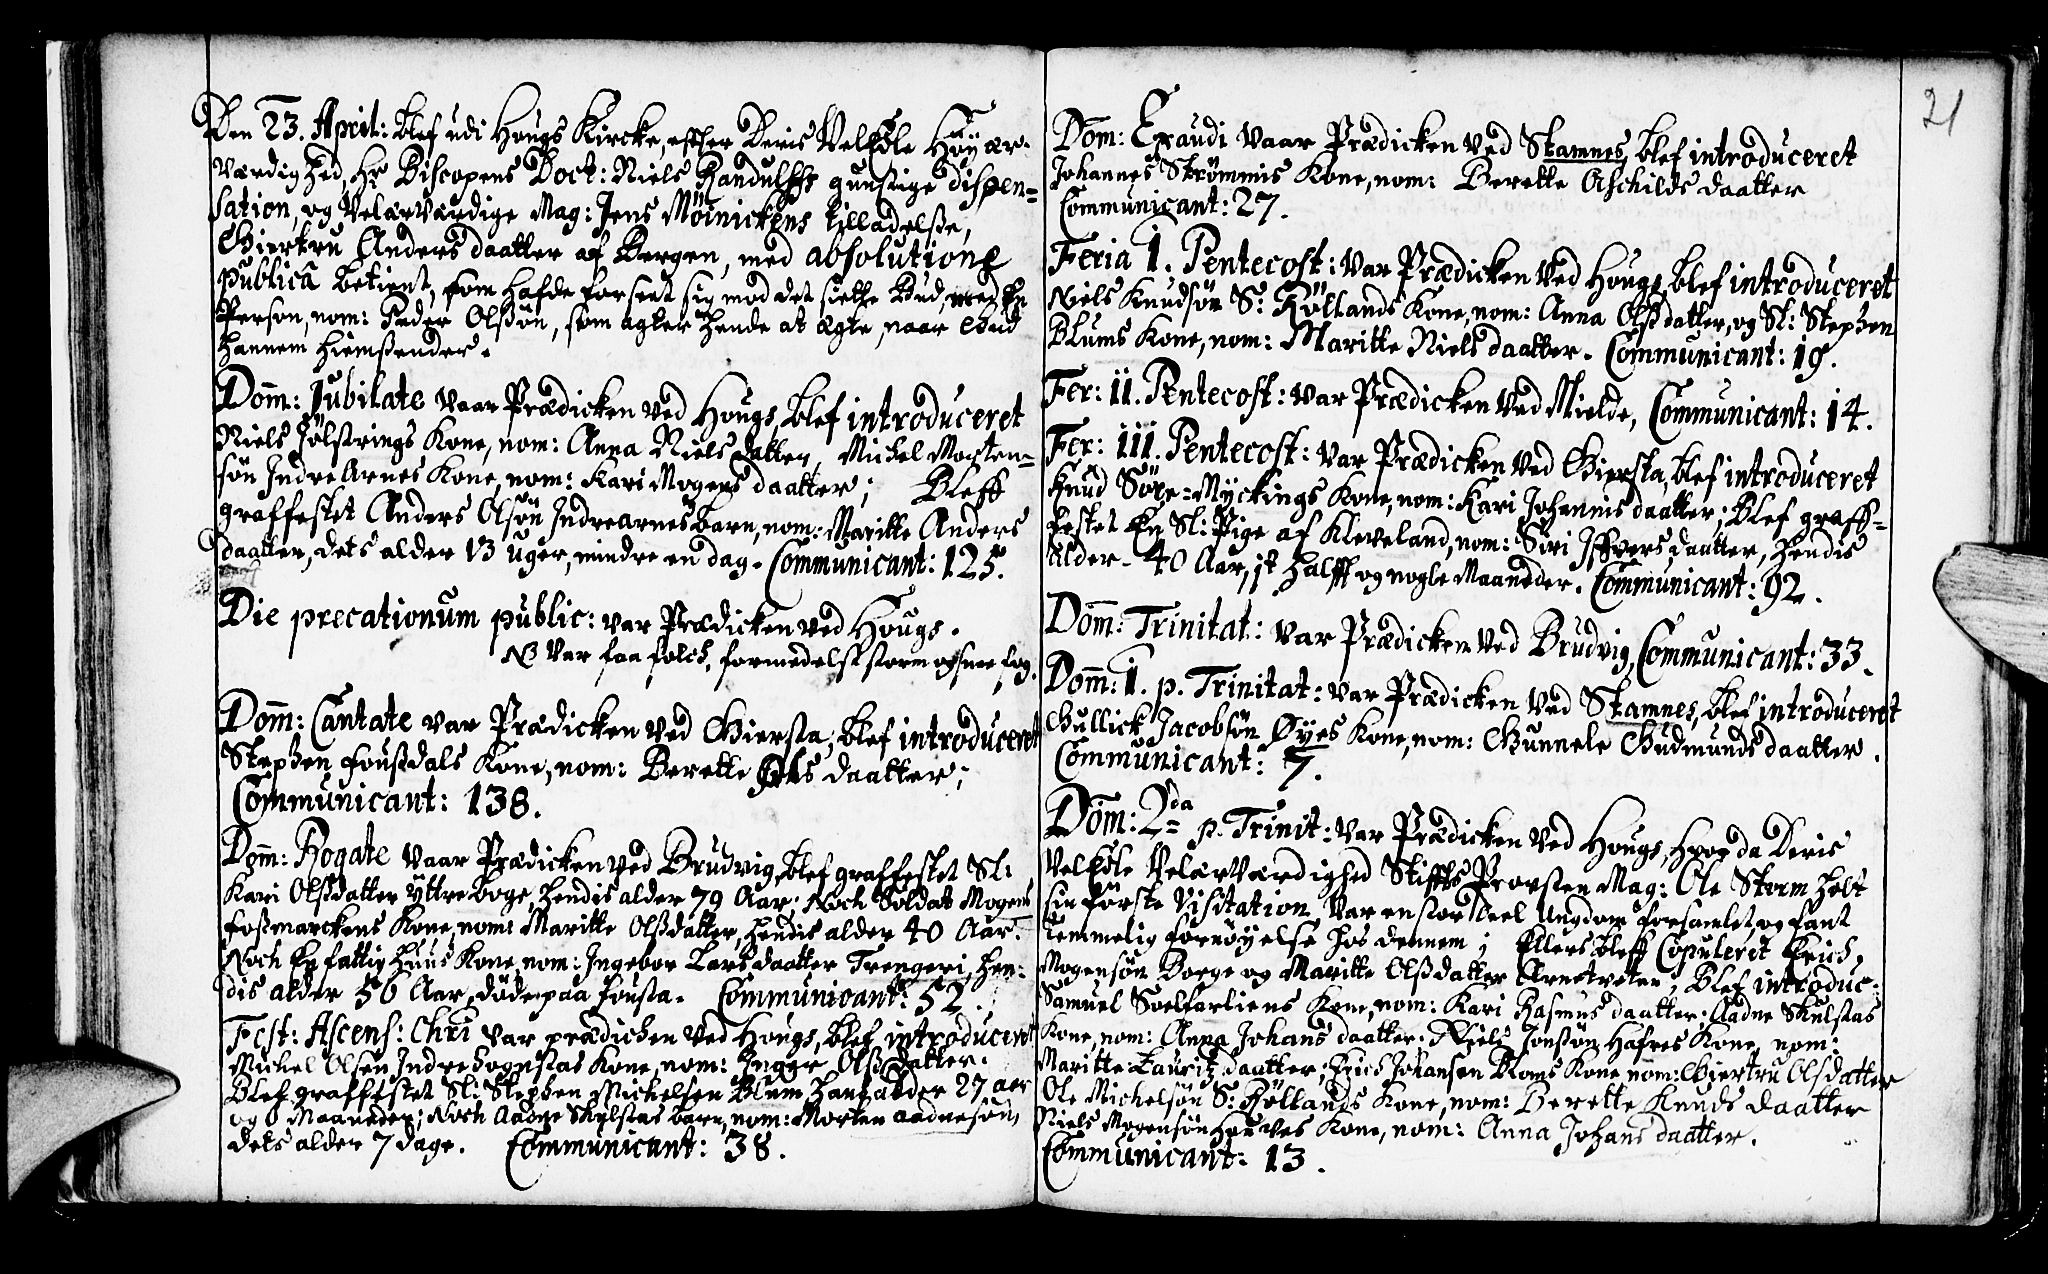 Den 23. April: blef udi Hougs Kircke, effter Deris VelEdle Høyær-
værdighed, Hr Biscopens Doct: Niels Randulffs gunstige dispen=
sation, og Velærværdige Mag: Jens Möinickens tilladelsse,
Giertru Andersdaatter af Bergen, med absolutione
publicâ betient, som hafde forseet sig mod det siette Bud, med En
Person, nom: Peder Olssøn, som agter hende at ægte, naar Gud
hannem hiemssender.
Dom̄: Jubilate vaar Prædicken ved Hougs, blef introduceret
Niels Jölstrings Kone, nom: Anna Nielsdatter, Michel Morten=
søn Indre Arnes Kone, nom: Kari Mogensdaatter; Bleff
graffestet Anders Olsøn Indrearnes barn, nom: Maritte Anders
daatter, dets alder 13 uger, mindre en dag. Communicant: 125.
Die precationum public: var Prædicken ved Hougs.
NB var faa folch, formedelst storm og snee fog.
Dom̄: Cantate var Prædicken ved Giersta, blef introduceret
Stephen Foussdals Kone, nom: Berette Olsdaatter;
Communicant: 138.
Dom̄: Rogate vaar Prædicken ved Brudvig, blef graffestet Sl:
Kari Olssdatter Yttre boge, hendis alder 79 Aar. Noch Soldat Mogens
Fossmarckens Kone, nom: Maritte Olssdatter, hendis alder 40 Aar.
Noch En fattig Huus Kone, nom: Ingebor Larsdaatter Trengeri, hen-
dis alder 56 Aar, døde paa Fousta. Communicant: 52.
Fest: Ascens: Chri var prædichen ved Hougs, blef introduceret
Michel Olsen Indrebognstas Kone, nom: Ingger Olssdatter.
Blef graffestet Sl: Stephen Michelsen Blum hans alder 27 aar
og 8 Maaneder; Noch Aadne Skulstas barn, nom: Morten Aadnesøn,
dets alder 7 dage. Communicant: 38.
21
Dom: Exaudi vaar Prædicken ved Stamnes, blef introduceret
Johannes Strømmis Kone, nom: Berette Aschildsdaatter
Communicant: 27.
Feria I. Pentecost: var Prædicken ved Hougs, blef introduceret
Niels Knudsøn S: Röllands Kone, nom: Anna Olssdatter, og Sl: Stephen
Blums Kone, nom: Maritte Nielsdaatter. Communicant: 19.
Fer: ii. Pentecost: var Prædicken ved Mielde, Communicant: 14.
Fer: iii. Pentecost: var Prædicken ved Giersta, blef introduceret
Knud Söre=Myckings Kone, nom: Kari Johannisdaatter; Blef graff=
festet En Sl: Pige af Kleveland, nom: Siri Iffversdaatter, hendis
alder 40 Aar, it halfft og nogle Maaneder. Communicant: 92.
Dom̄: Trinitat: var Prædicken ved Brudvig, Communicant: 33.
Dom̄: I. p. Trinitat: var Prædicken ved Stamnes, blef introduceret
Gullick Jacobsøn Øyes Kone, nom: Gunnele Gudmundsdaatter.
Communicant: 7.
Dom: 2da p. Trinit: var Prædicken ved Hougs, hvor da Deris
VelEdle Velærværdighed Stiffts Provsten Mag: Ole Storm holt
sin første Visitation, var en stor deel Ungdom forsamlet og fant
temmelig fornøyelse hos dennem; Ellers bleff Copuleret Erich
Mogensøn Borge og Maritte Olssdatter Arnetveten, Blef introduc:
Samuel Soelfarliens Kone, nom: Kari Rasmusdaatter, Aadne Skulstas
Kone, nom: Anna Johansdaatter. Niels Jonssøn Hafres Kone, nom:
Maritte Lauritzdaatter, Erich Johansen Bloms Kone nom: Giertru Olsdatter
Ole Michelsøn S: Röllands Kone, nom: Berette Knudsdaatter
Niels Mogensøn Hauves Kone, nom: Anna Johansdaatter.
Communicant: 13.